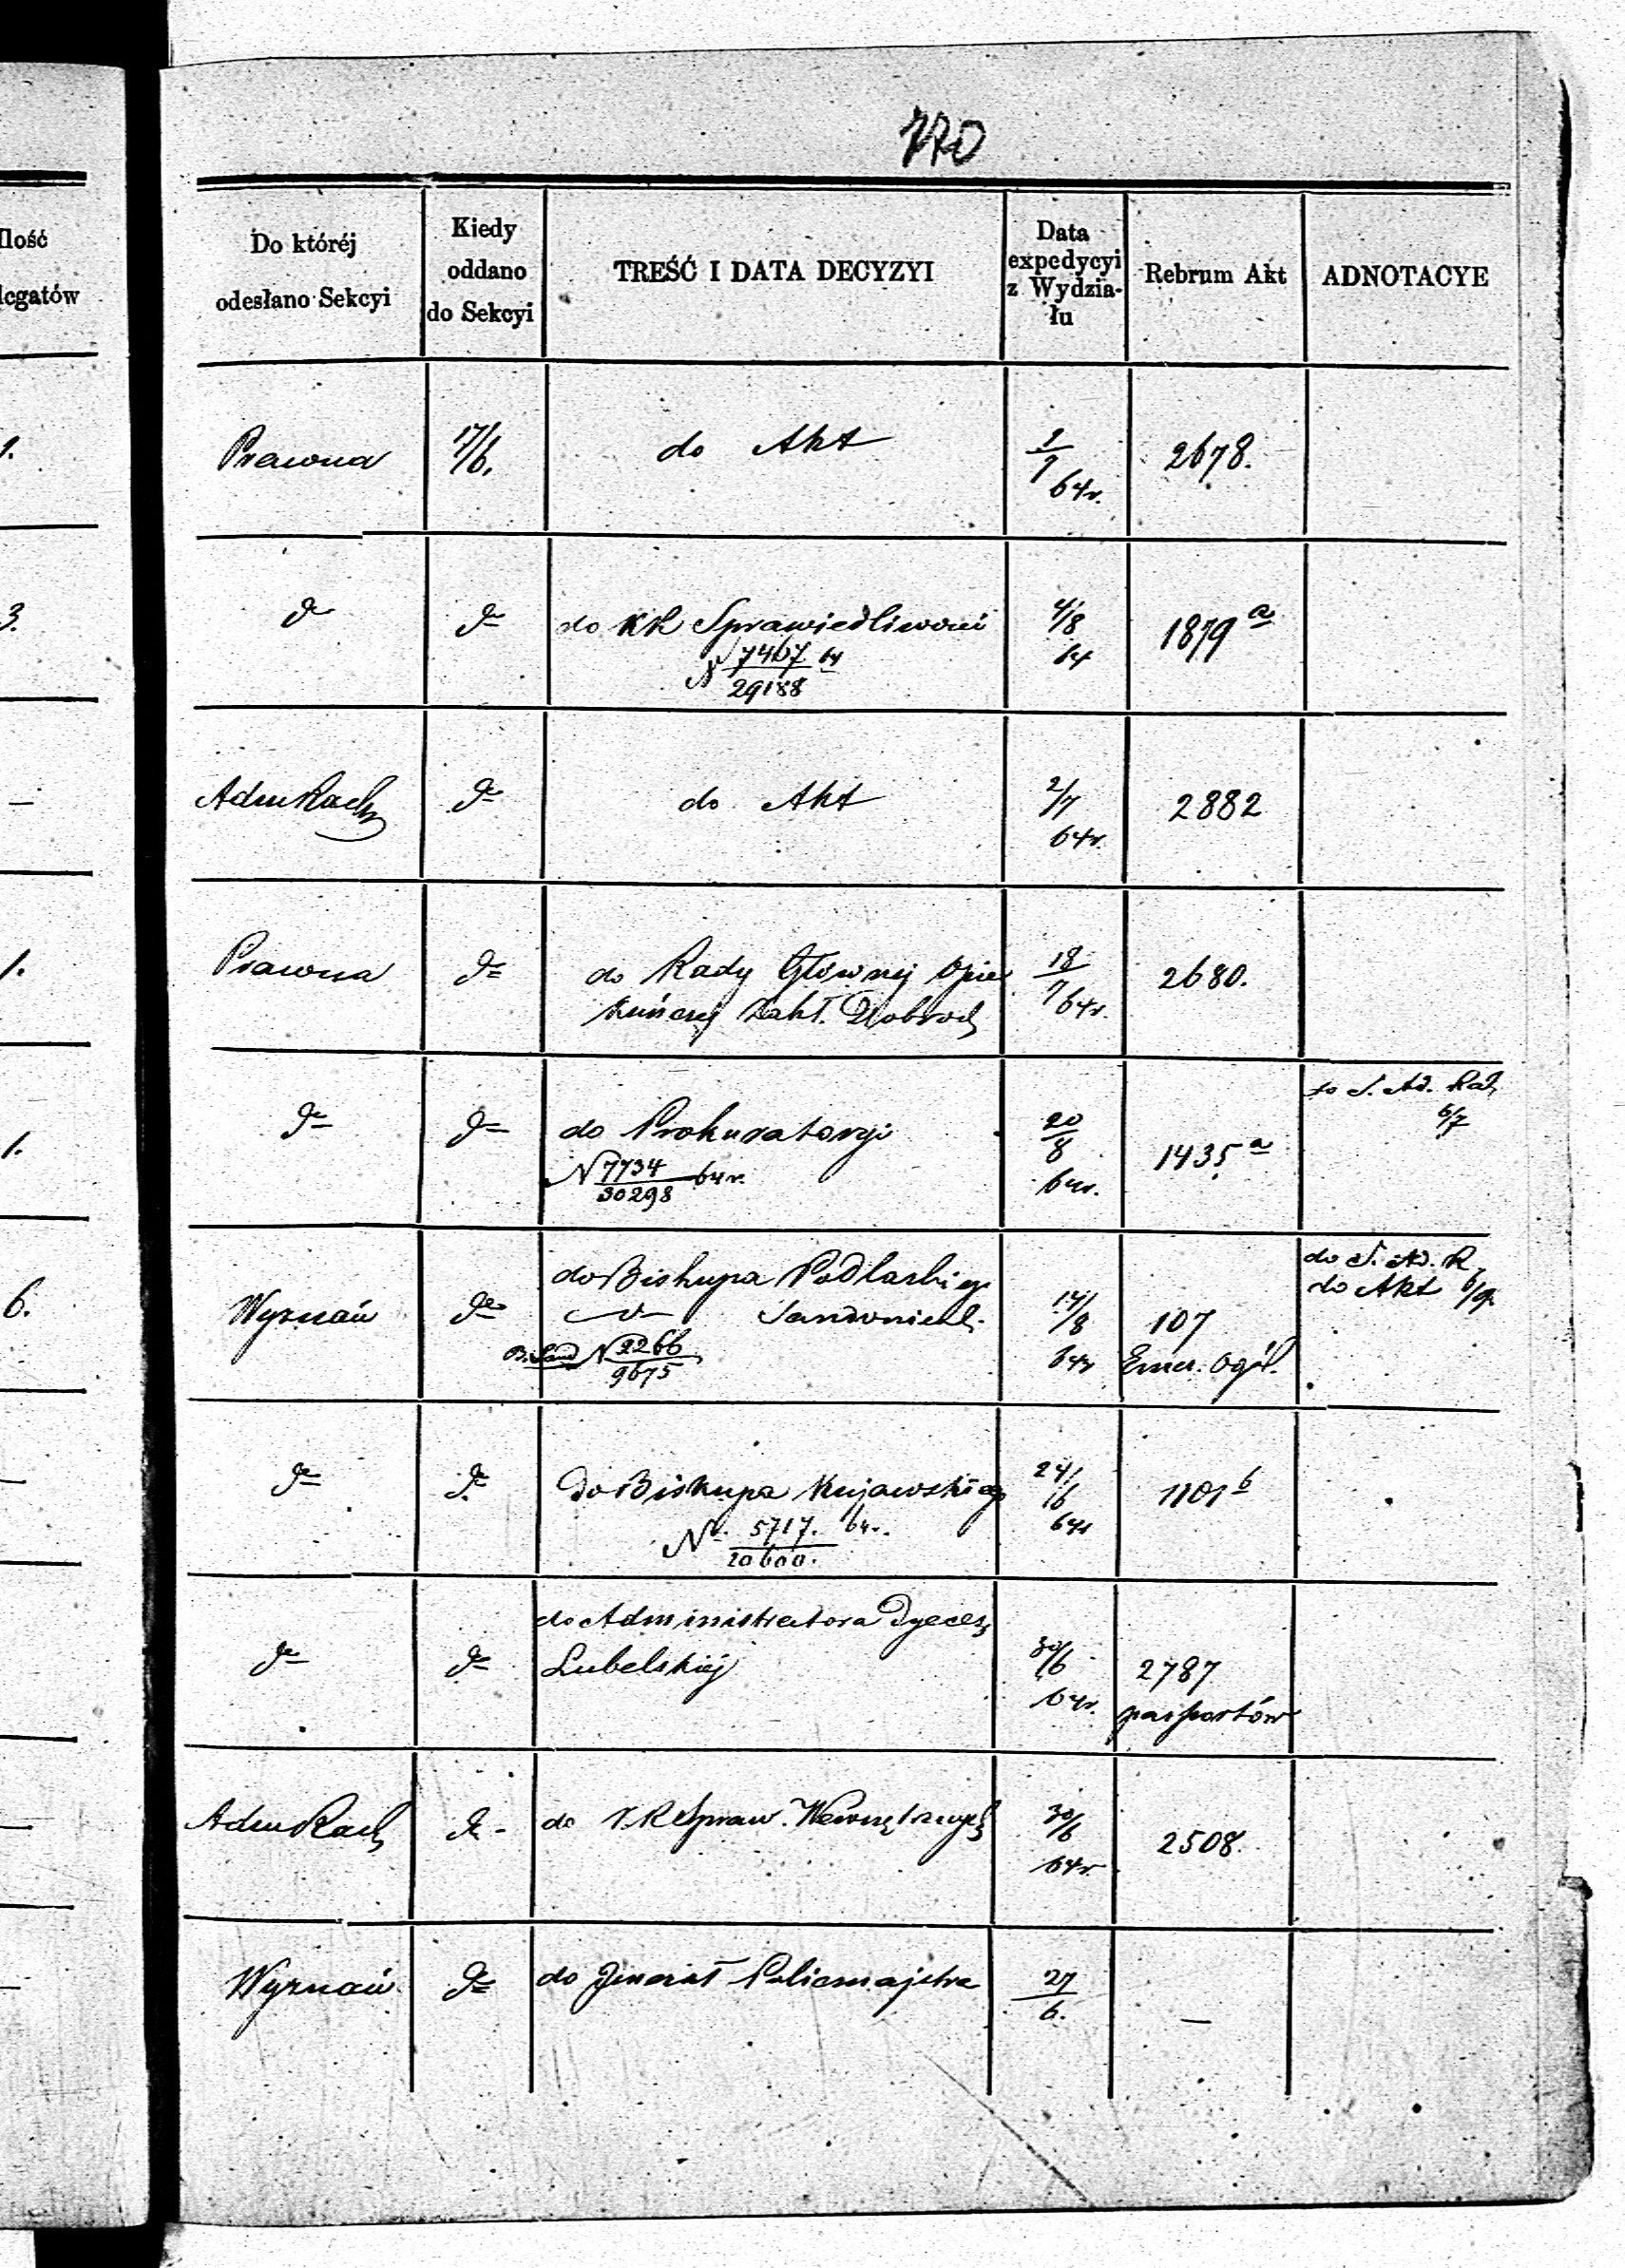 770
Ilość
legatów
Do któréj
odesłano Sekcyi
Kiedy
oddano
do Sekcyi
TREŚĆ I DATA DECYZYI
Data
expedycyi
z Wydzia-
łu
Rebrum Akt
ADNOTACYE
1.
Prawna
17/6.
do Akt
64r.
2678.
3.
do
do
do KR Sprawiedliwości
N 7467 64
29188
4/8
64
1879 a
—
Adm Rach
do
do Akt
2/7
64r.
2882
1.
Prawna
do
do Rady Głównej Opie
kuńczej Zakł. Dobrocz
18/7 64r.
2680.
1.
do
do
do Prokuratoryi
N 7734 64r.
30298
20/8
64r.
1435 a
do S. Ad. Rach
6/7
6.
Wyznań
do
do Biskupa Podlaskiego
—d— Sandomiersk.
B. Sand N 2266
9675
17/8
64r
107
Emer. Ogól.
do S. Ad. R.
do Akt 6/9.
—
do
do
do Biskupa Kujawskiego
N. 5717. 64r.
20600.
24/6
64r
1101 b
do
do
do Administratora Dyecez
Lubelskiéj
30/6
64r.
2787
paszportów
—
Adm Rach
do -
do KR Spraw. Wewnętrznych
30/6
64r
2508.
—
Wyznań
do
do Jenerał Policmajstra
27
6.
—